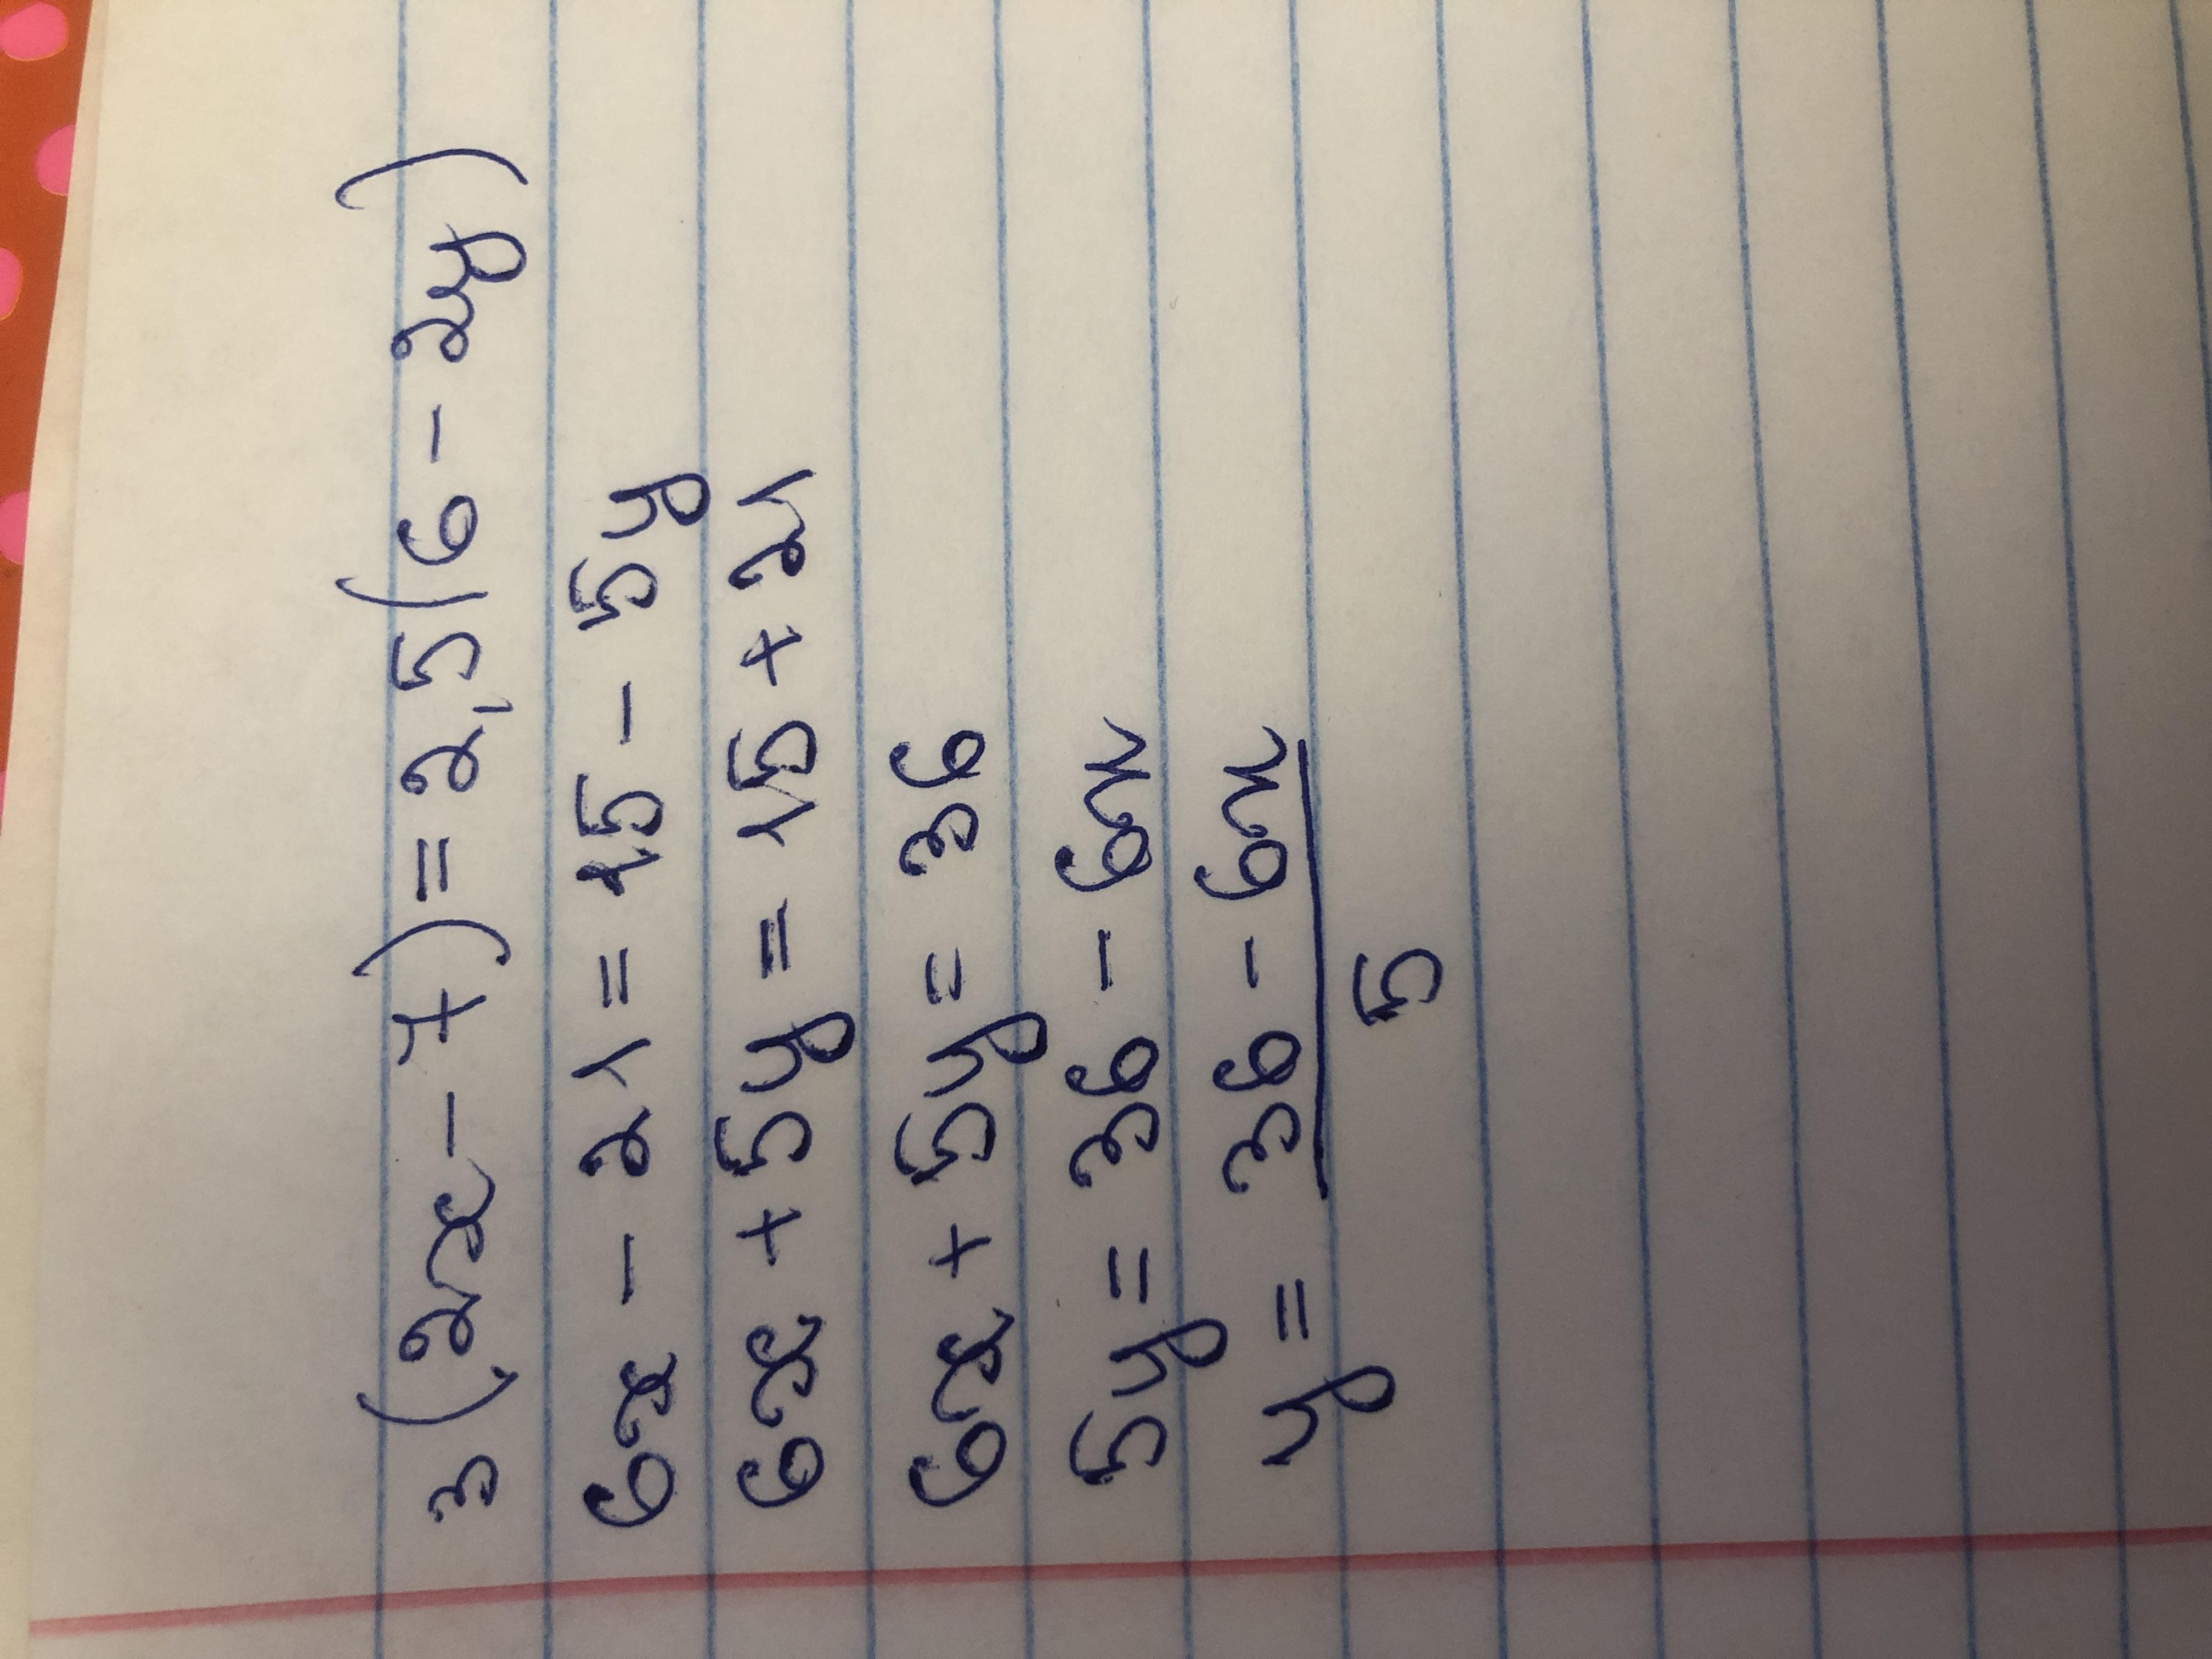 3(2x - 7) = 2,5(6 - 2y)
6x - 21 = 15 - 5y
6x + 5y = 15 + 21
6x + 5y = 36
5y = 36 - 6x
y = 36 - 6x
5